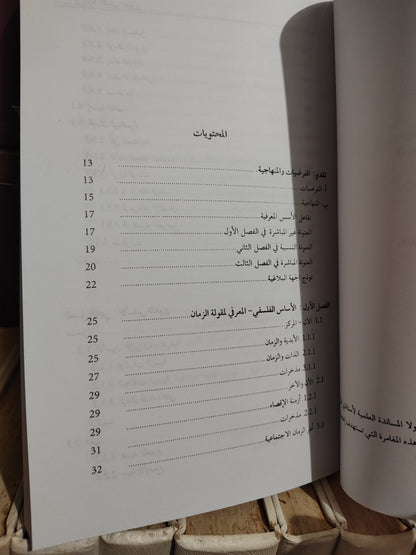 المحتويات
تقديم: الفرضيات والمنهاجية 13
أ- الفرضيات 13
ب- المنهاجية 15
تفاعل الأسس المعرفية 17
العنونة غير المباشرة في الفصل الأول 17
العنونة النسبية في الفصل الثاني 19
العنونة المباشرة في الفصل الثالث 20
نموذج الجهة البلاغية 22
الفصل الأول: الأساس الفلسفي - المعرفي لمقولة الزمان 25
1.1 الآن - المركز 25
1.1.1 الأبدية والزمان 25
2.1.1 الذات والزمان 27
3.1.1 مدخرات 29
2.1 الأنا والآخر 29
1.2.1 أزمنة الإقصاء 29
2.2.1 مدخرات 31
3.1 الزمان الاجتماعية 32
ولا المساندة العلمية لأستاذ
هذه المغامرة التي تستهدف